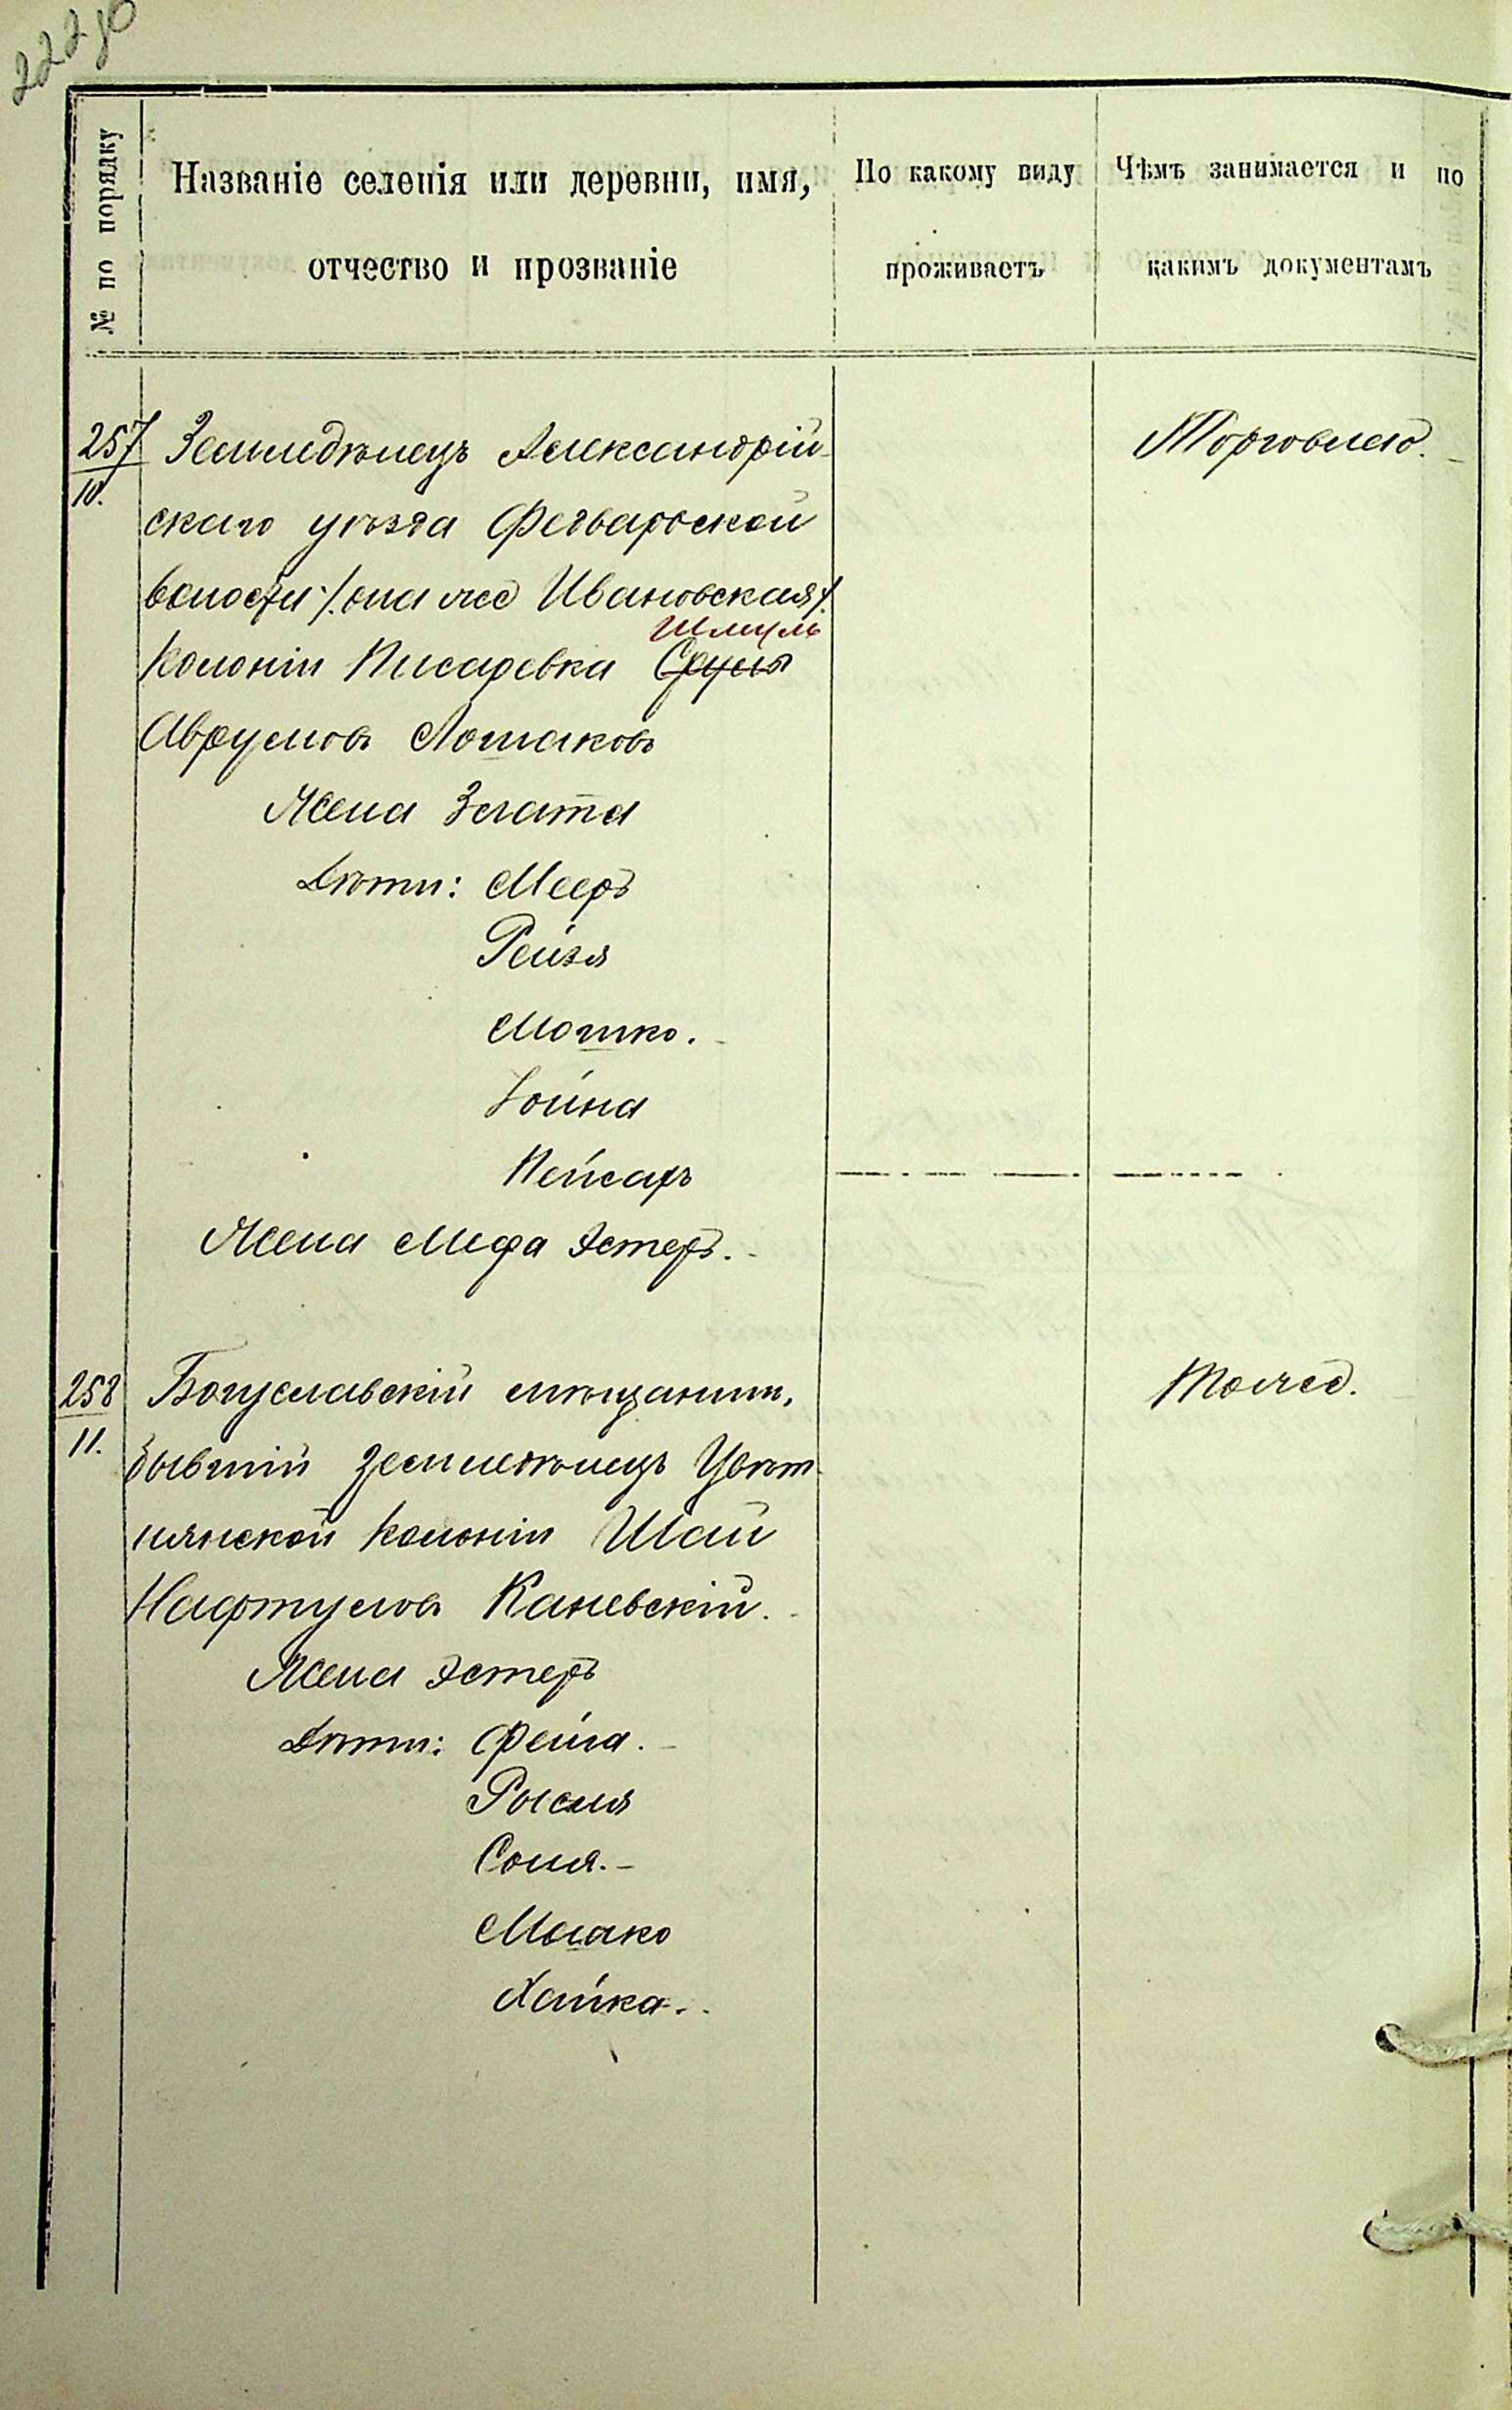 222 об
№ по порядку
Названіе селенія или деревни, имя,
отчество и прозваніе
По какому виду
проживаетъ
Чѣмъ занимается и по
какимъ документамъ
257
10.
Земледѣлецъ Александрій-
скаго уѣзда Федварской
волости /. она же Ивановская ./
Шмуль
Колоніи Писаревка Сруль
Аврумовъ Лошаковъ
Жена Злата
Дѣти: Мееръ
Рейзя
Мошко.
Іойна
Пейсахъ
Жена Меера Эстеръ.
Торговлею.
258
11.
Богуславскій мѣщанинъ,
бывшій земледѣлецъ Цвѣт-
нянской колоніи Шай
Нафтуловъ Каневскій.
Жена Эстеръ
Дѣти: Фейга.
Рысля
Соня.
Мошко
Хайка.
Тоже.